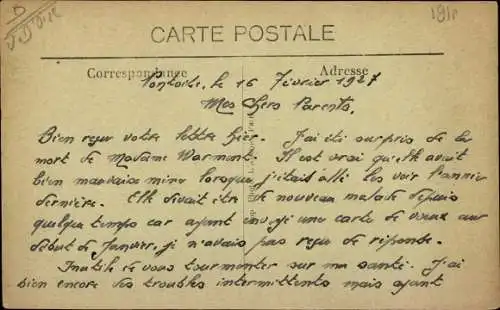 CARTE POSTALE
Correspondance
Adresse
Pontoise, le 16 Février 1927
Mes Chers Parents,
Bien reçu votre lettre hier. J'ai été surpris de la
mort de Madame Warmont. Il est vrai qu'elle avait
bien mauvaise mine lorsque j'étais allé les voir l'année
dernière. Elle devait être de nouveau malade depuis
quelque temps car ayant envoyé une carte de vœux au
début de Janvier, je n'avais pas reçu de réponse.
Inutile de vous tourmenter sur ma santé. J'ai
bien encore des troubles intermittents mais ayant